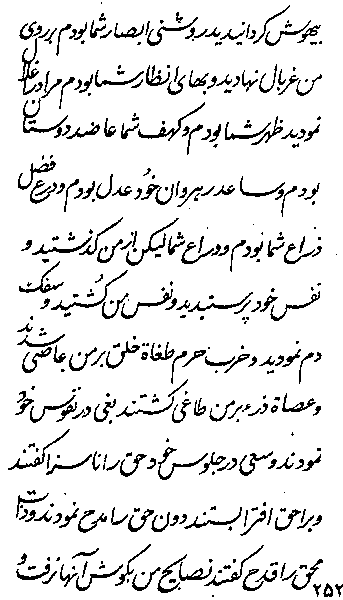 بیهوش گردانیدید روشنی ابصار شما بودم بر روی
من غربال نهادید و بهای انظار شما بودم مرا در اغلال
نمودید ظهر شما بودم و کهف شما عاضد دوستان
بودم و ساعد رهروان خود عدل بودم و درع فضل
ذراع شما بودم و دراع شما لیکن از من گذشتید و
نفس خود پرستیدید و نفس من کشتید و سفک
دم نمودید و خرب حرم طغاة خلق بر من عاصی شدند
و عصاة ذرء بر من طاغی گشتند بغی در نفوس خود
نمودند و سعی در جلوس خود حق را ناسزا گفتند
و بر احق افترا بستند دون حق را مدح نمودند و ذات
محق را قدح گفتند نصایح من بگوش آنها نرفت و
۲۵۲